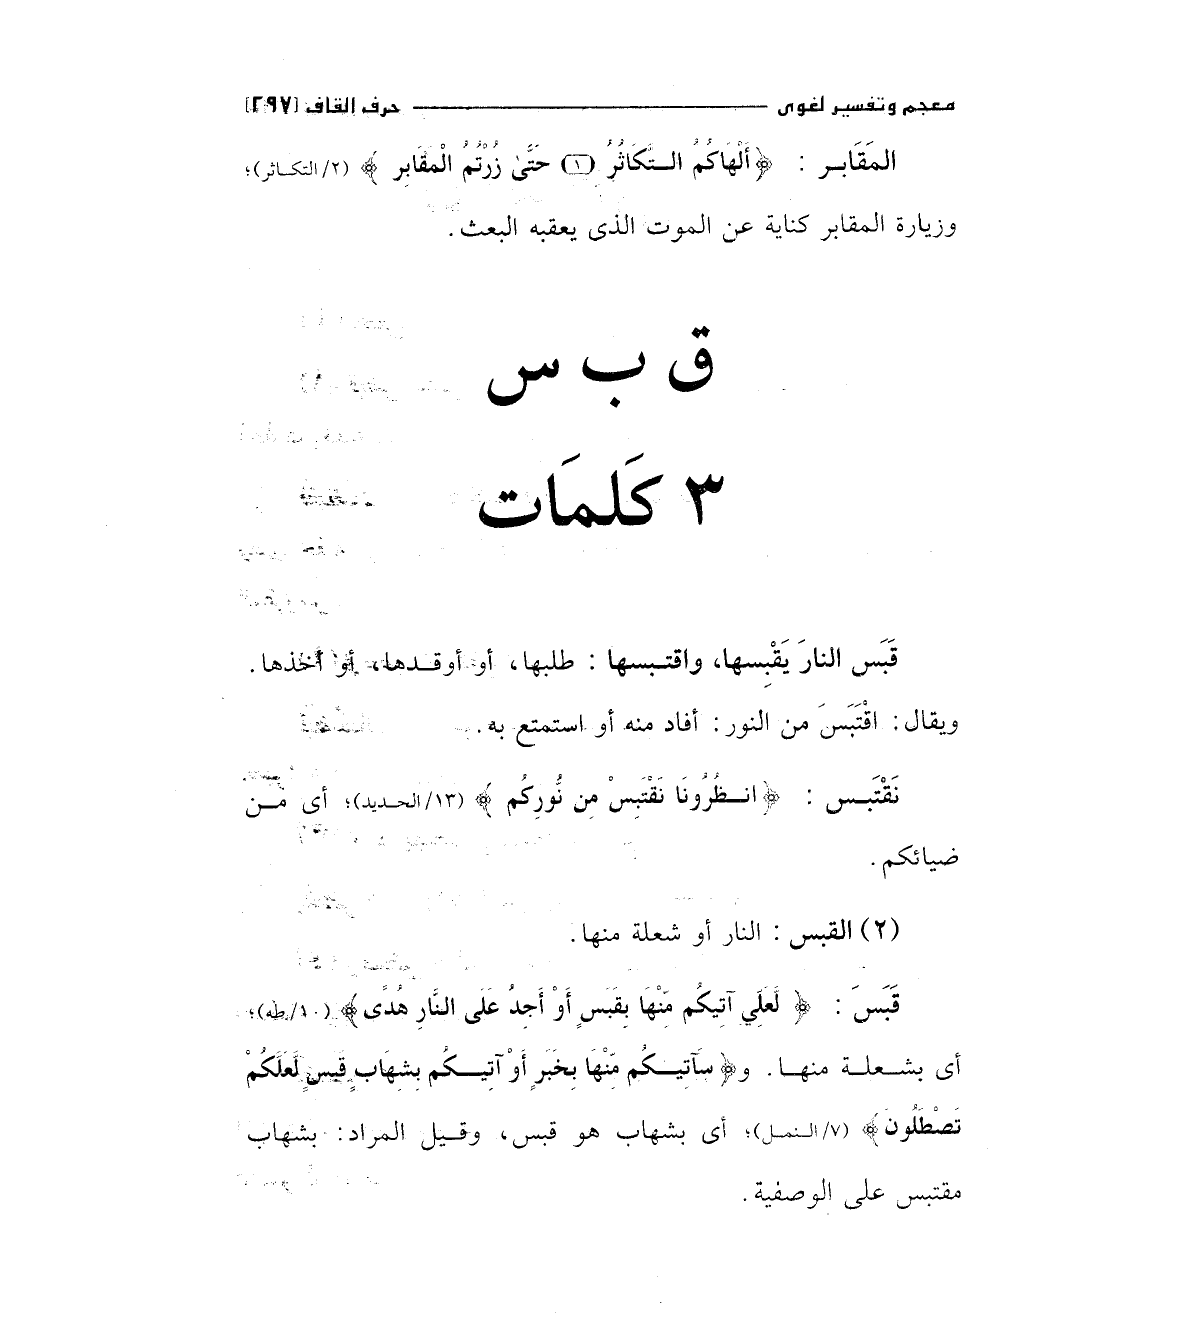 معجم وتفسير لغوى ــــــ حرف القاف [٢٩٧]
المَقَابـر : ﴿أَلْهَاكُمُ الـتَّكَاثُرُ (١) حَتَّىٰ زُرْتُمُ الْمَقَابِرَ ﴾ (٢/التكـاثر)؛
وزيارة المقابر كناية عن الموت الذى يعقبه البعث.
ق ب س
٣ كَلمَات
قَبَس النارَ يَقْبِسها، واقتـبسها : طلبها، أو أوقـدها، أو أخذها.
ويقال: اقْتَبَسَ من النور: أفاد منه أو استمتع به.
نَقْتَبـس : ﴿انـظُرُونَا نَقْتَبِسْ مِن نُّورِكُمْ ﴾ (١٣/الحـديد)؛ أى مـن
ضيائكم.
(٢) القبس : النار أو شعلة منها.
قَبَسَ : ﴿ لَّعَلِّي آتِيكُم مِّنْهَا بِقَبَسٍ أَوْ أَجِدُ عَلَى النَّارِ هُدًى﴾ (١٠/طه)؛
أى بشـعلـة منهـا. و﴿سَآتِيـكُم مِّنْهَا بِخَبَرٍ أَوْ آتِيـكُم بِشِهَابٍ قَبَسٍ لَّعَلَّكُمْ
تَصْطَلُونَ﴾ (٧/النمـل)؛ أى بشهاب هو قبس، وقـيل المراد: بشهاب
مقتبس على الوصفية.